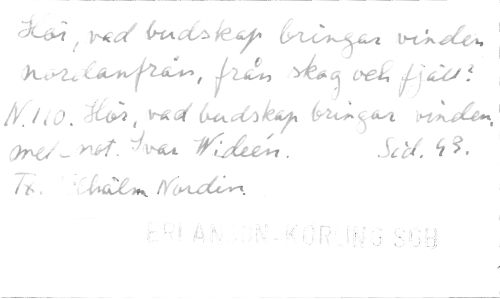 Hör, vad budskap bringar vinden
nordanfrån, från skog och fjäll?
N. 110. Hör, vad budskap bringar vinden,
mel-not. Ivar Widéen. Sid. 93.
Tx. Vilhälm Nordin.
ERLANSON-KÖRLING SGB